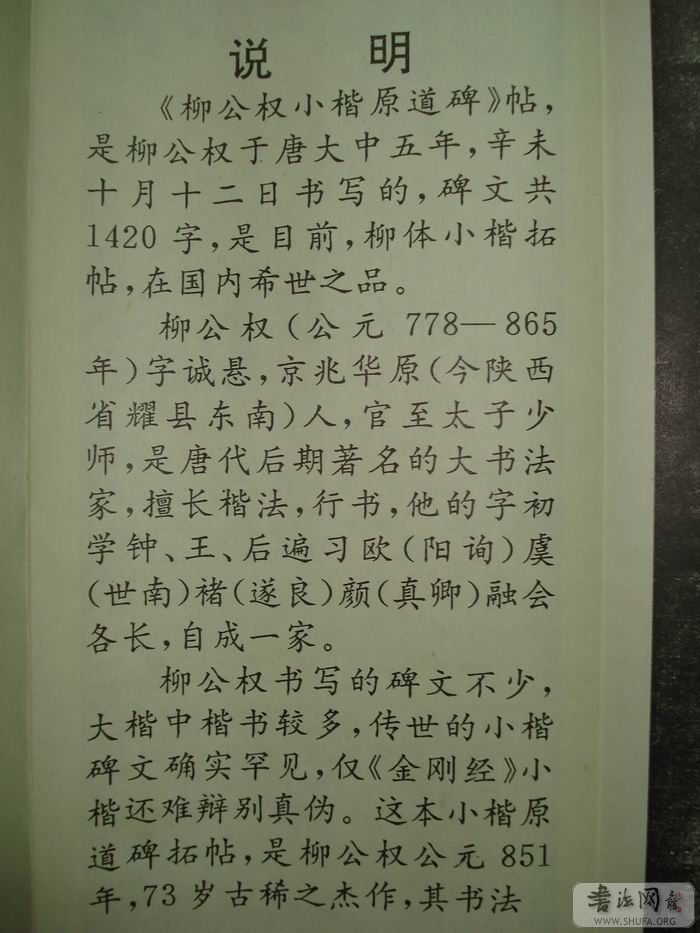 说 明
《柳公权小楷原道碑》帖，
是柳公权于唐大中五年，辛未
十月十二日书写的，碑文共
1420字，是目前，柳体小楷拓
帖，在国内希世之品。
柳公权（公元 778—865
年）字诚悬，京兆华原（今陕西
省耀县东南）人，官至太子少
师，是唐代后期著名的大书法
家，擅长楷法，行书，他的字初
学钟、王、后遍习欧（阳询）虞
（世南）褚（遂良）颜（真卿）融会
各长，自成一家。
柳公权书写的碑文不少，
大楷中楷书较多，传世的小楷
碑文确实罕见，仅《金刚经》小
楷还难辩别真伪。这本小楷原
道碑拓帖，是柳公权公元 851
年，73岁古稀之杰作，其书法
书法网
WWW.SHUFA.ORG